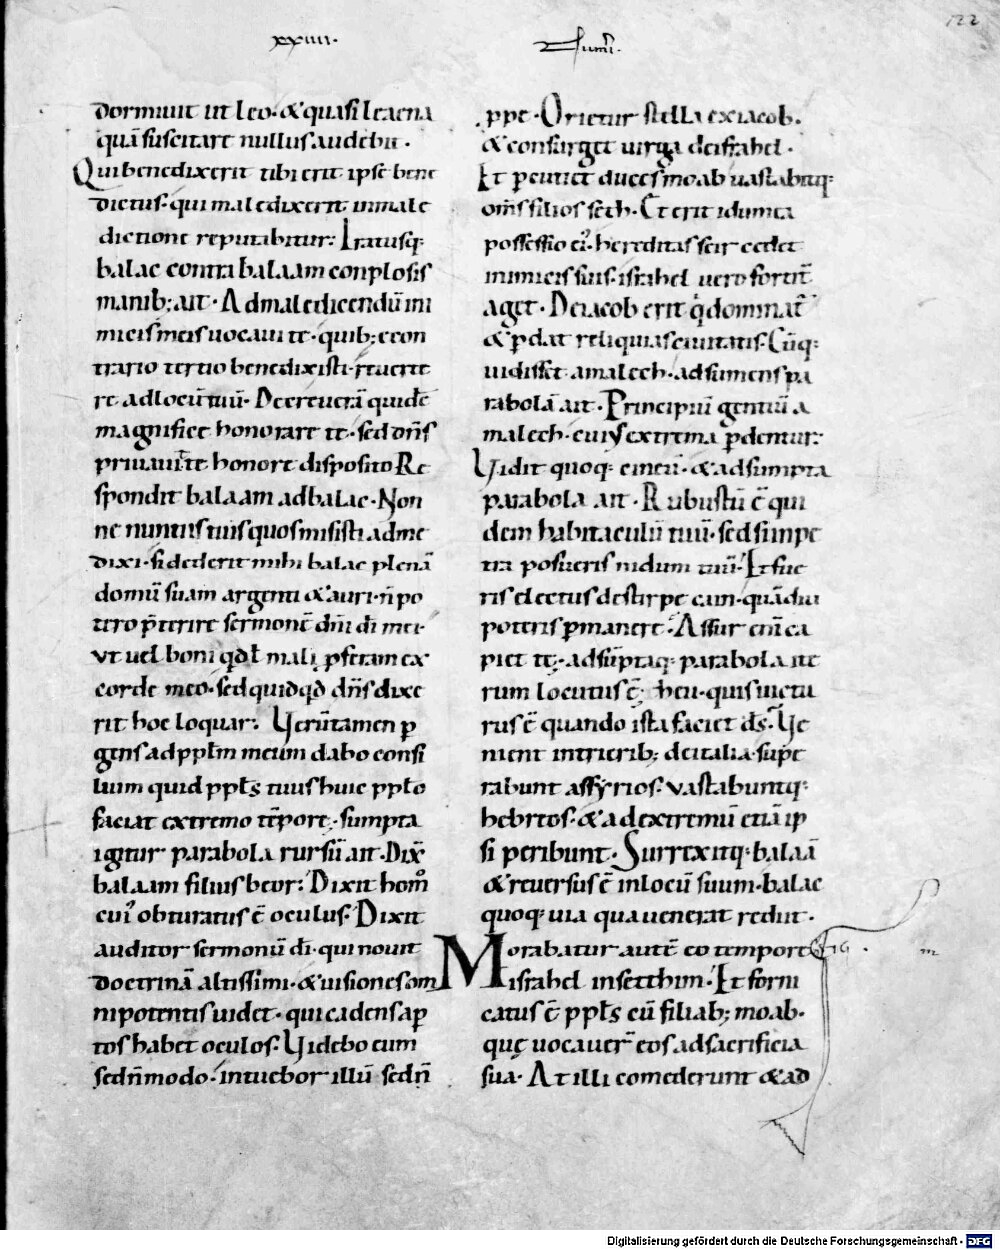 122
xxiiii.
Numeri.
dormiuit ut leo. & quasi leaena
quā suscitare nullus audebit.
Qui benedixerit tibi erit ipse bene
dictus. qui maledixerit in male
dictione reputabitur. Iratusq;
balac contra balaam conplosis
manib; ait. Ad maledicendū ini
micis meis uocaui te. quib; econ
trario tertio benedixisti. reuerte
re ad locū tuū. Decreuerā quidē
magnifice honorare te. sed dn̄s
priuauit te honore disposito Re
spondit balaam ad balac. Non
ne nuntiis tuis quos misisti ad me
dixi. si dederit mihi balac plenā
domū suam argenti & auri. ñ po
tero p̄terire sermonē dn̄i di mei.
vt uel boni qđ ł mali proferam ex
corde meo. sed quidqđ dn̄s dixe
rit hoc loquar. Verūtamen p
gens ad ppłm meum dabo consi
lium quid ppłs tuus huic ppło
faciat extremo tēpore. sumpta
igitur parabola rursū ait. Dix̄
balaam filius beor. Dixit homo
cui' obturatus ē oculus. Dixit
auditor sermonū dī. qui nouit
doctrinā altissimi. & uisiones om
nipotentis uidet. qui cadens ap
tos habet oculos. Videbo eum
sed ñ modo. intuebor illū sed ñ
ppe. Orietur stella ex iacob.
& consurget uirga de israhel.
Et pcutiet duces moab uastabitq;
om̄s filios seth. Et erit idumea
possessio ei'. hereditas seir cedet
inimicis suis. israhel uero fortit̄
aget. De iacob erit q̇ dominat̄
& pdat reliquias ciuitatis. Cūq;
uidisset amalech. adsumens pa
rabolā ait. Principiū gentiū a
malech. cuius extrema pdentur.
Vidit quoq; cineū. & adsumpta
parabola ait. Robustū ē qui
dem habitaculū tuū. sed si in pe
tra posueris nidum tuū. Et fue
ris electus de stirpe cain. quādiu
poteris pmanere. Assur enī ca
piet te. adsūptaq; parabola ite
rum locutus ē. heu. quis uictu
rus ē quando ista faciet ds. Ve
nient in trierib; de italia. supe
rabunt assyrios. vastabuntq;
hebreos. & ad extremū etiā ip
si peribunt. Surrexitq; balaā
& reuersus ē in locū suum. balac
quoq; uia qua uenerat rediit.
Morabatur autē eo tempore
israhel in setthim. Et forni
catus ē ppłs cū filiab; moab.
quę uocauer̄ eos ad sacrificia
sua. At illi comederunt & ad
Digitalisierung gefördert durch die Deutsche Forschungsgemeinschaft - DFG